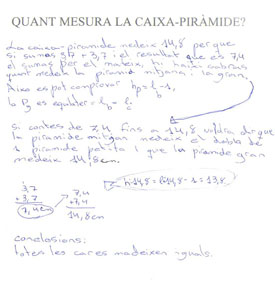 QUANT MESURA LA CAIXA-PIRÀMIDE?
La caixa-piramide medeix 14,8 perque
si sumas 3,7 + 3,7 i el resultat que es 7,4
el sumas per el mateix, hi haixi sabras
quant medeix la piramid mitjana i la gran.
Aixo es pot comprovar
la B es equiler
Si contes de 7,4 fins a 14,8 voldra dir que
la piramide mitjan medeix el doble de
1 piramide petita i que la piramide gran
medeix 14,8cm.
h=14,8 = 14,8 - 1 = 13,8
3,7
+3,7
7,4cm
7,4
+7,4
14,8cm
conclosions:
totes les cares medeixen iguals.